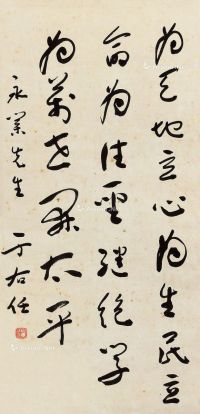 为天地立心为生民立
命为往圣继绝学
为万世开太平
永业先生
于右任